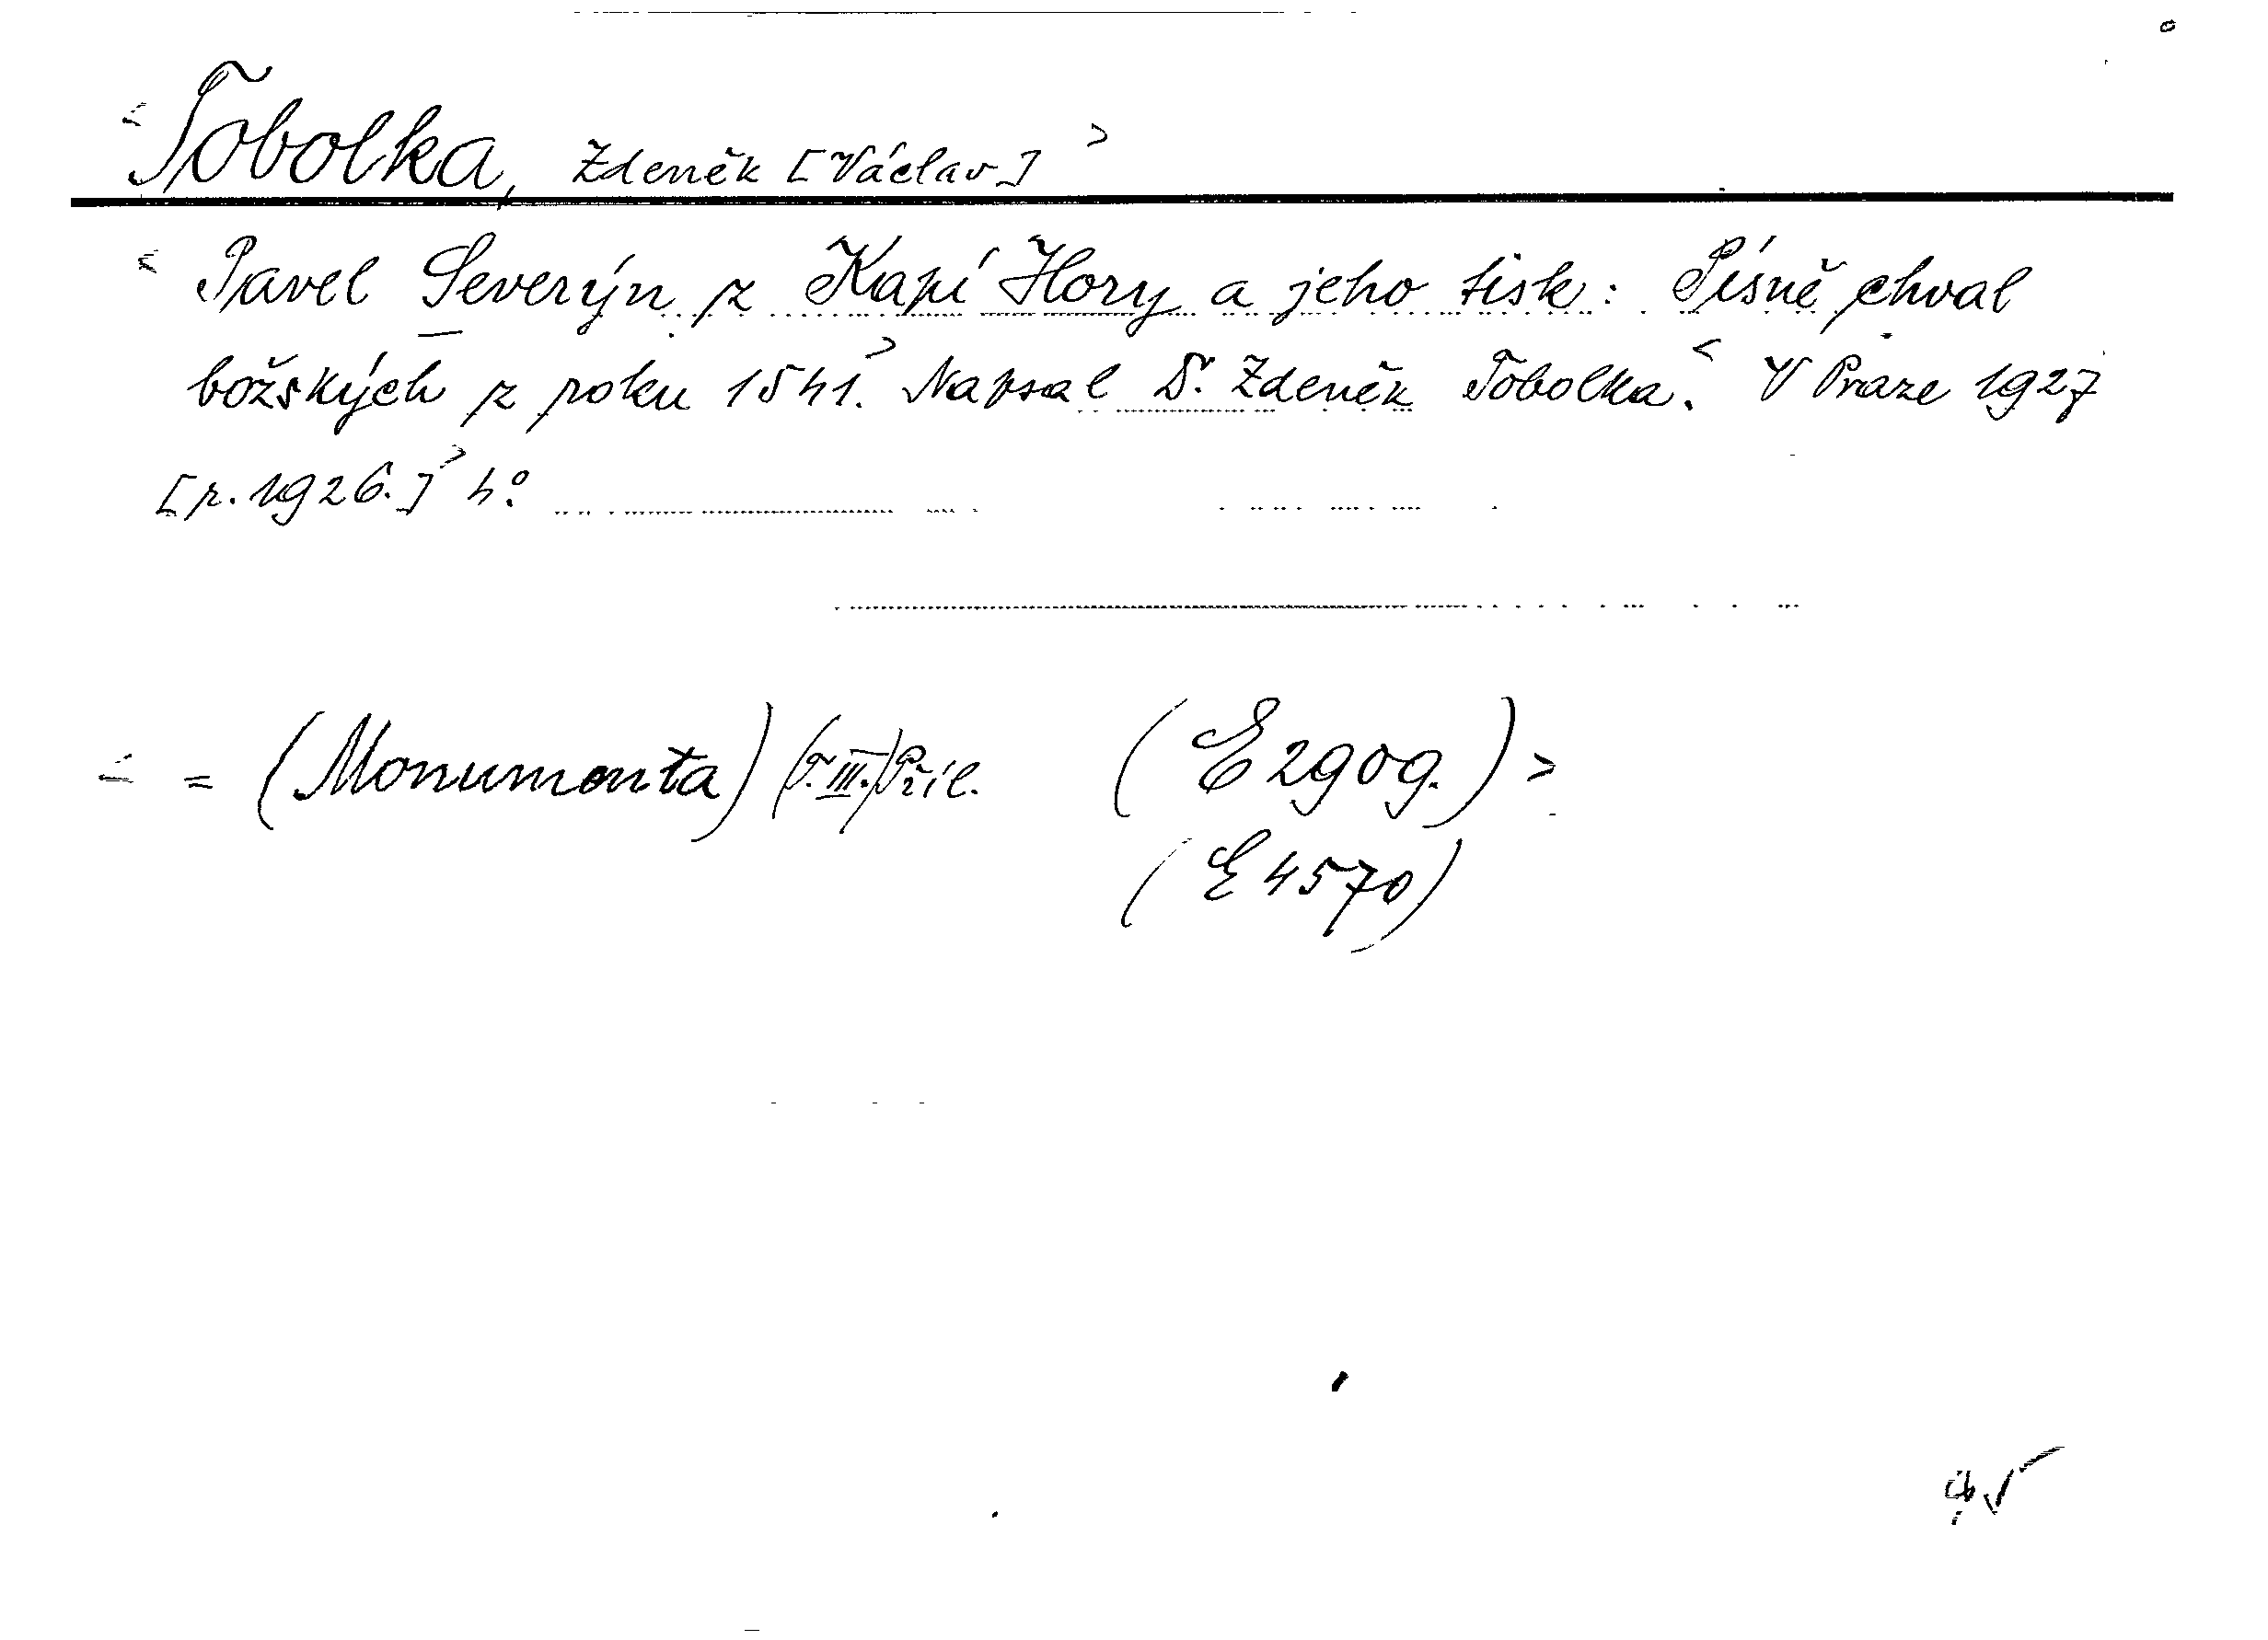 <Tobolka, Zdeněk [Václav]>
< Pavel Severýn z Kapí Hory a jeho tisk: Písně chval
božských z roku 1541.> Napsal D. Zdeněk Tobolka.< V Praze 1927
[r. 1926.]> 4°.
< = (Monumenta) (T. III.) Příl. (E 2909.) >
(E 4570)